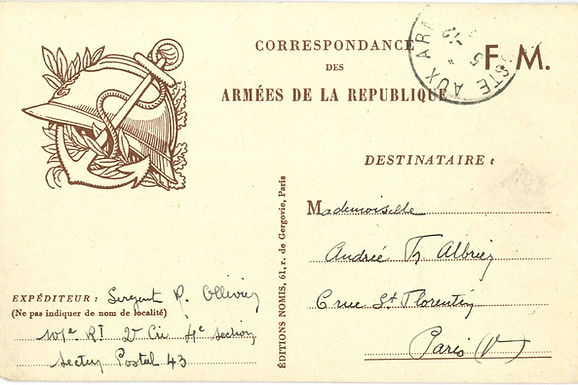 CORRESPONDANCE
DES
ARMÉES DE LA REPUBLIQUE
F. M.
POSTE AUX ARM
DESTINATAIRE :
Mademoiselle
Andrée
rue St Florentin
Paris (V)
ÉDITIONS NOMIS, 61, r. de Gergovie, Paris
EXPÉDITEUR : Sergent P. Ollivier
(Ne pas indiquer de nom de localité)
RI 2e Cie 4e section
Secteur Postal 43